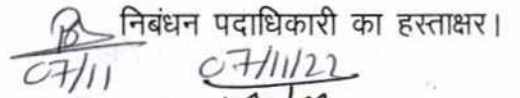 निबंधन पदाधिकारी का हस्ताक्षर।
07/11 07/11/22